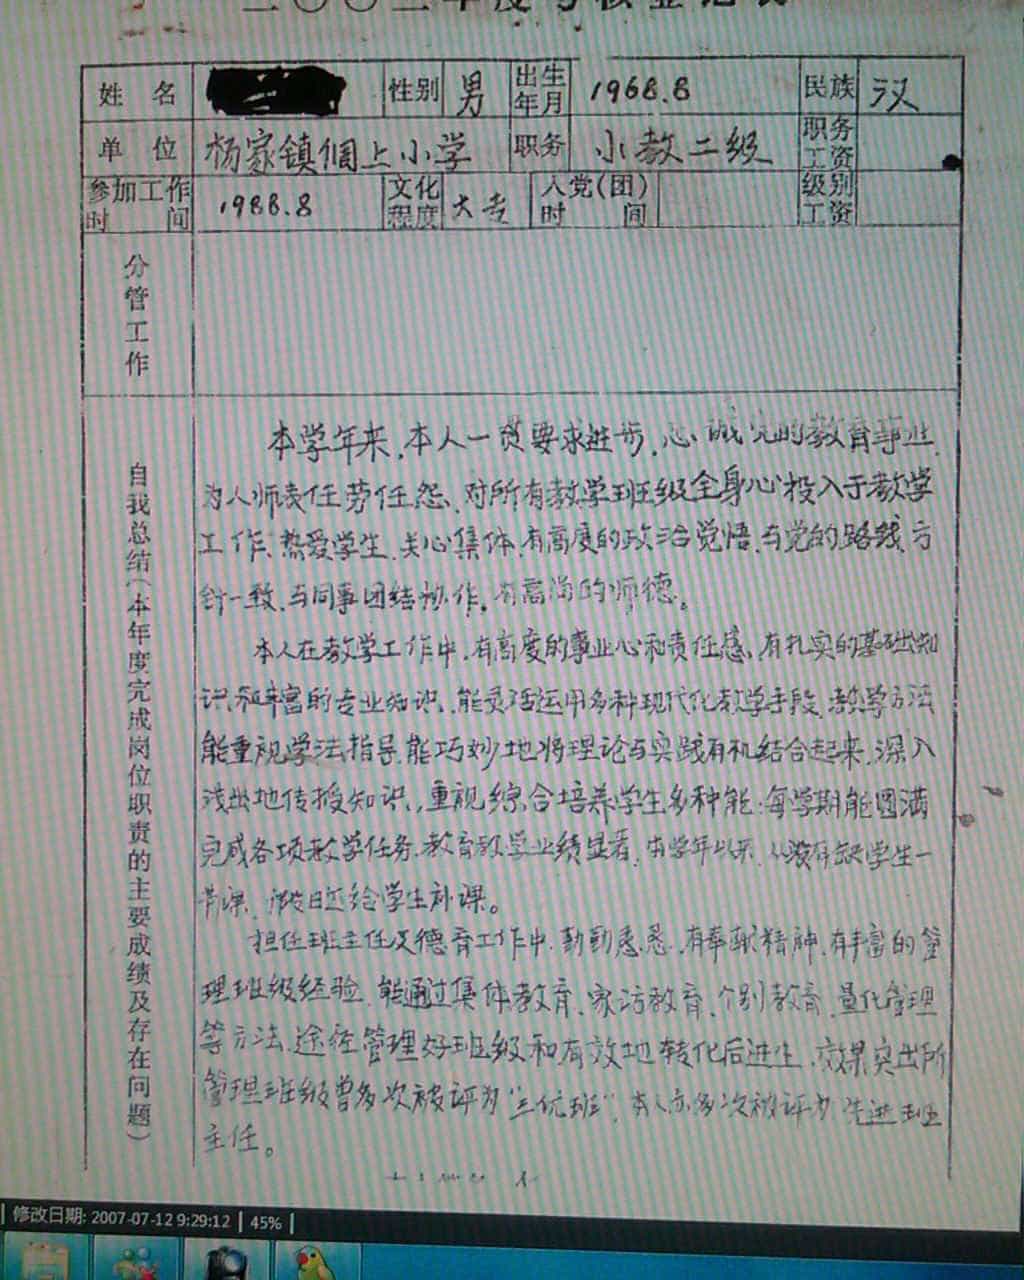 二〇〇二年度考核登记表
姓 名 性别 男 出生年月 1968.8 民族 汉
单 位 杨家镇倜上小学 职务 小教二级 职务工资
参加工作时间 1988.8 文化程度 大专 入党(团)时间 级别工资
分管工作
自我总结(本年度完成岗位职责的主要成绩及存在问题)
本学年来,本人一贯要求进步,忠诚党的教育事业,
为人师表任劳任怨、对所有教学班级全身心投入于教学
工作、热爱学生、关心集体,有高度的政治觉悟,与党的路线、方
针一致、与同事团结协作。有高尚的师德。
本人在教学工作中,有高度的事业心和责任感、有扎实的基础知
识和丰富的专业知识、能灵活运用多种现代化教学手段、教学方法
能重视学法指导,能巧妙地将理论与实践有机结合起来,深入
浅出地传授知识,重视综合培养学生多种能;每学期能圆满
完成各项教学任务、教育教学业绩显著,本学年以来,从没有缺学生一
节课,假日还给学生补课。
担任班主任及德育工作中,勤勤恳恳,有奉献精神,有丰富的管
理班级经验,能通过集体教育、家访教育、个别教育、量化管理
等方法、途径管理好班级和有效地转化后进生,效果突出所
管理班级曾多次被评为“三优班”,本人亦多次被评为先进班
主任。
修改日期: 2007-07-12 9:29:12 | 45% |